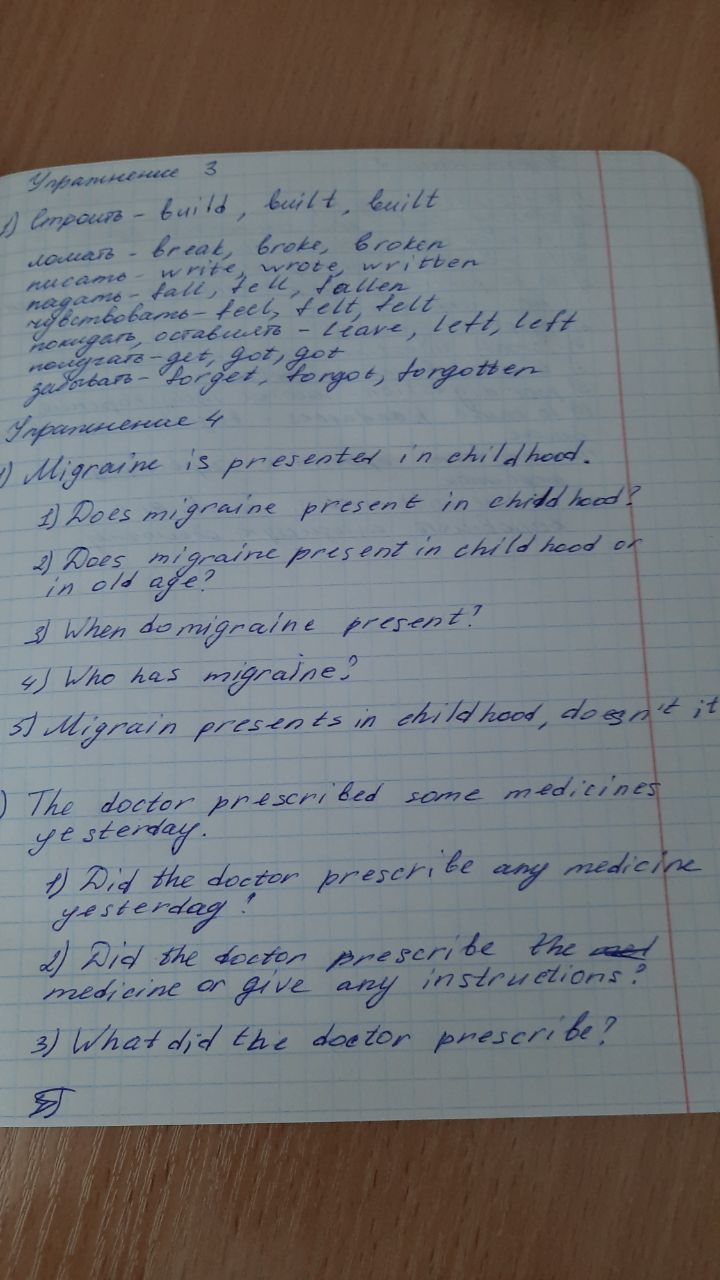 Упражнение 3
1) Строить - build, built, built
ломать - break, broke, broken
писать - write, wrote, written
падать - fall, fell, fallen
чувствовать - feel, felt, felt
покидать, оставлять - leave, left, left
получать - get, got, got
забывать - forget, forgot, forgotten
Упражнение 4
1) Migraine is presented in childhood.
1) Does migraine present in childhood?
2) Does migraine present in childhood or
in old age?
3) When do migraine present?
4) Who has migraine?
5) Migrain presents in childhood, doesn't it
) The doctor prescribed some medicines
yesterday.
1) Did the doctor prescribe any medicine
yesterday?
2) Did the doctor prescribe the
medicine or give any instructions?
3) What did the doctor prescribe?